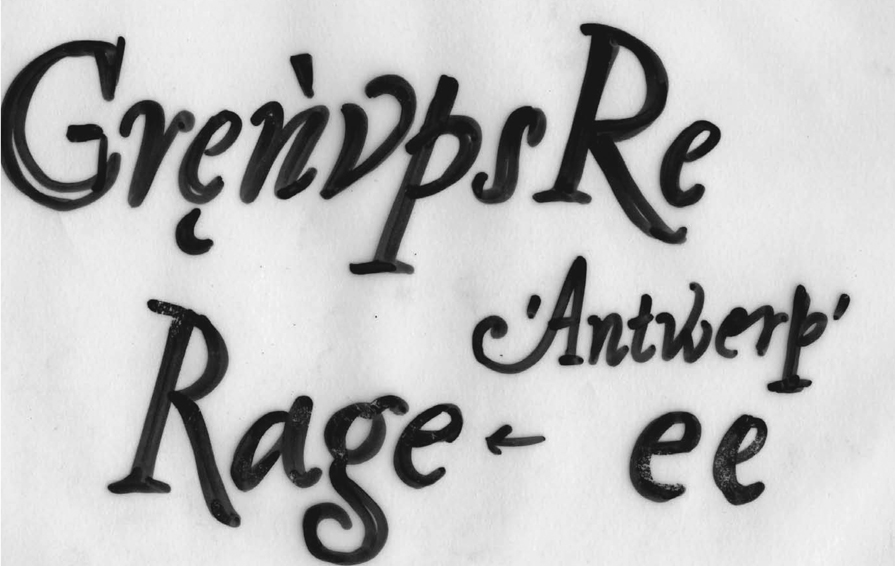 GręǹvpsRe
'Antwerp'
Rage ← ee